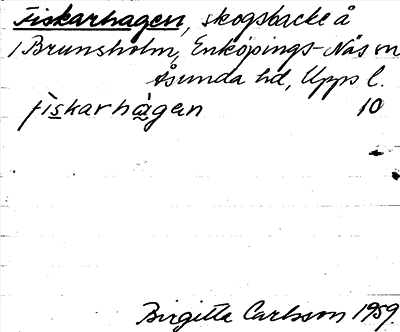 Fiskarhagen, skogsbacke å
/ Brunsholm, Enköpings-Näs sn
Åsunda hd, Upps l.
fìskarhà̰gen 10
Birgitta Carlsson 1959.